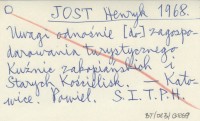 JOST Henryk 1968.
Uwagi odnośnie [do] zagospo-
darowania turystycznego
Kuźnic zakopiańskich i
Starych Kościelisk. — Kato-
wice: Powiel. S.I.T.P.H.